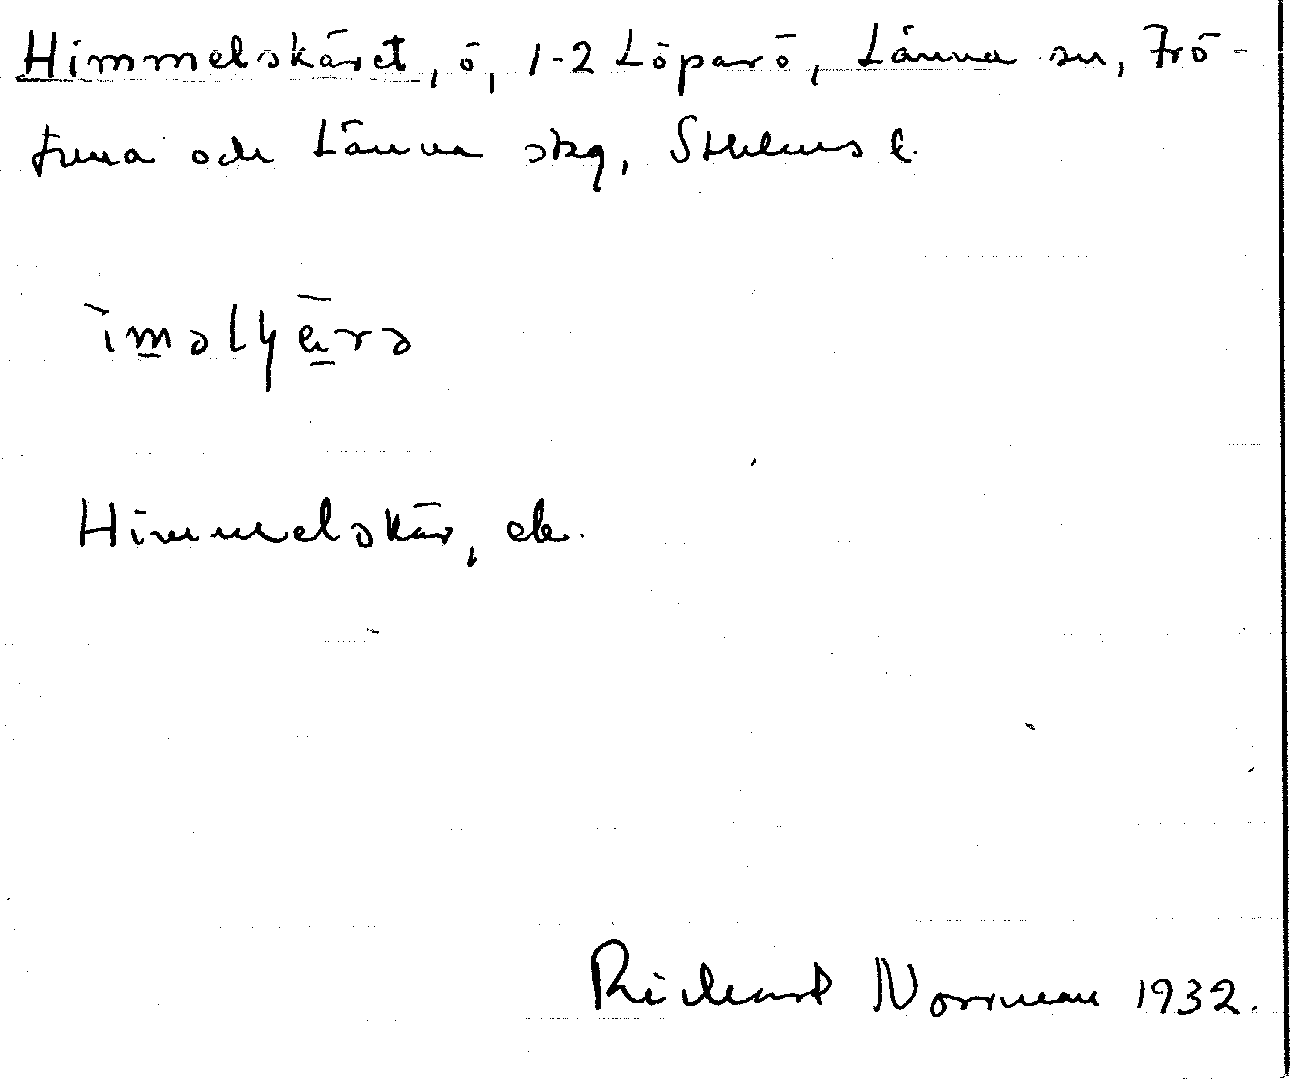 Himmelskäret, ö, 1-2 Löparö, Länna sn, Frö-
tuna och Länna skg, Sthlms l.
Himmelskär, ek.
Rickard Norrman 1932.